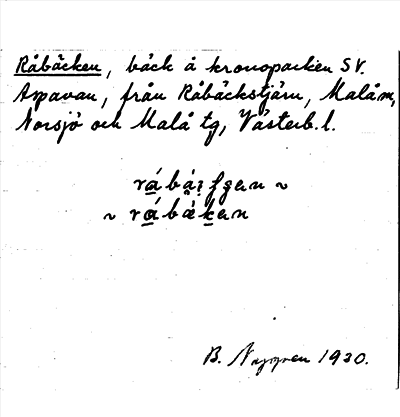 Råbäcken, bäck å kronoparken SV.
Aspavan, från Råbäckstjärn, Malåm,
Norsjö och Malå tg, Västerb. l.
~
~
B. Nygren 1930.